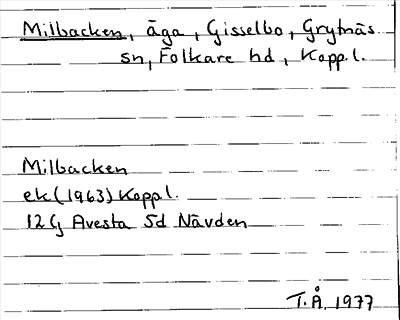 Milbacken, äga, Gisselbo, Grytnäs
sn, Folkare hd, Kopp.l.
Milbacken
ek (1963) Kopp l.
12G Avesta 5d Nävden
T.Å. 1977